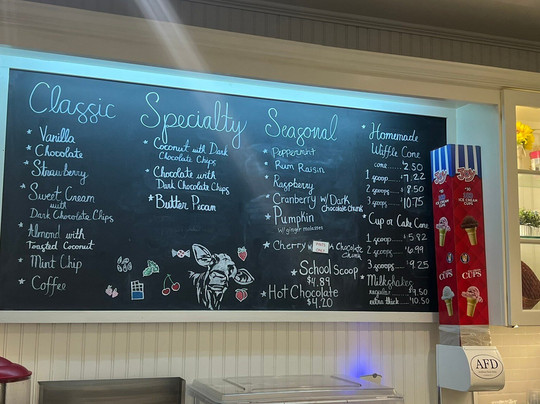 Classic
* Vanilla
* Chocolate
* Strawberry
* Sweet Cream
with
Dark Chocolate Chips
* Almond with
Toasted Coconut
* Mint Chip
* Coffee
Specialty
* Coconut with Dark
Chocolate Chips
* Chocolate with
Dark Chocolate Chips
* Butter Pecan
Seasonal
* Peppermint
* Rum Raisin
* Raspberry
* Cranberry w/Dark
Chocolate Chunk
* Pumpkin
w/ginger molasses
* Cherry Chocolate
Chunk
* School Scoop
$4.89
* Hot Chocolate
$4.20
* Homemade
Waffle Cone
cone 2.50
1 scoop $7.22
2 scoops $8.50
3 scoops $10.75
* Cup or Cake Cone
1 scoop $5.82
2 scoops $6.99
3 scoops $9.25
* Milkshakes
regular $9.50
extra thick $10.50
Joy
Joy
ICE CREAM
CUPS
CUPS
CUPS
AFD